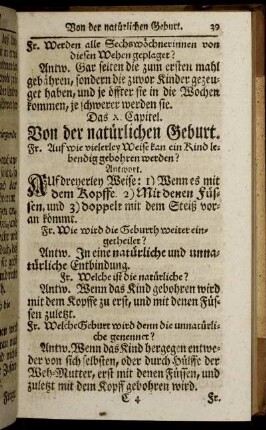 Von der natürlichen Geburt. 39
Fr. Werden alle Sechswöchnerinnen von
diesen Wehen geplaget?
Antw. Gar selten die zum ersten mahl
gebähren, sondern die zuvor Kinder gezeu-
get haben, und je öffter sie in die Wochen
kommen, je schwerer werden sie.
Das X. Capitel.
Von der natürlichen Geburt.
Fr. Auf wie vielerley Weise kan ein Kind le-
bendig gebohren werden?
Antwort.
AUf dreyerley Weise: 1) Wenn es mit
dem Kopffe. 2) Mit denen Füs-
sen, und 3) doppelt mit dem Steiß vor-
an kömmt.
Fr. Wie wird die Geburth weiter ein-
getheilet?
Antw. In eine natürliche und unna-
türliche Entbindung.
Fr. Welche ist die natürliche?
Antw. Wenn das Kind gebohren wird
mit dem Kopffe zu erst, und mit denen Füs-
sen zuletzt.
Fr. Welche Geburt wird denn die unnatürli-
che genennet?
Antw. Wenn das Kind hergegen entwe-
der von sich selbsten, oder durch Hülffe der
Weh-Mutter, erst mit denen Füssen, und
zuletzt mit dem Kopff gebohren wird.
C 4 Fr.